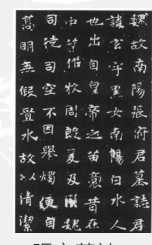 魏故南陽張府君墓誌君
諱玄字黑女南陽白水人
也出自皇帝之苗裔昔在
中葉作牧周殷爰及漢魏
司徒司空不因舉燭便自
高明無假置水故以清潔